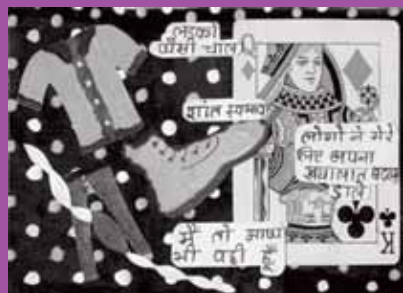 लड़की
जैसी चाल
शांत स्वभाव
लोगों ने मेरे
लिए अपना
ख्यालात बदल
डाले
मैं तो आज
भी वही हूँ
K